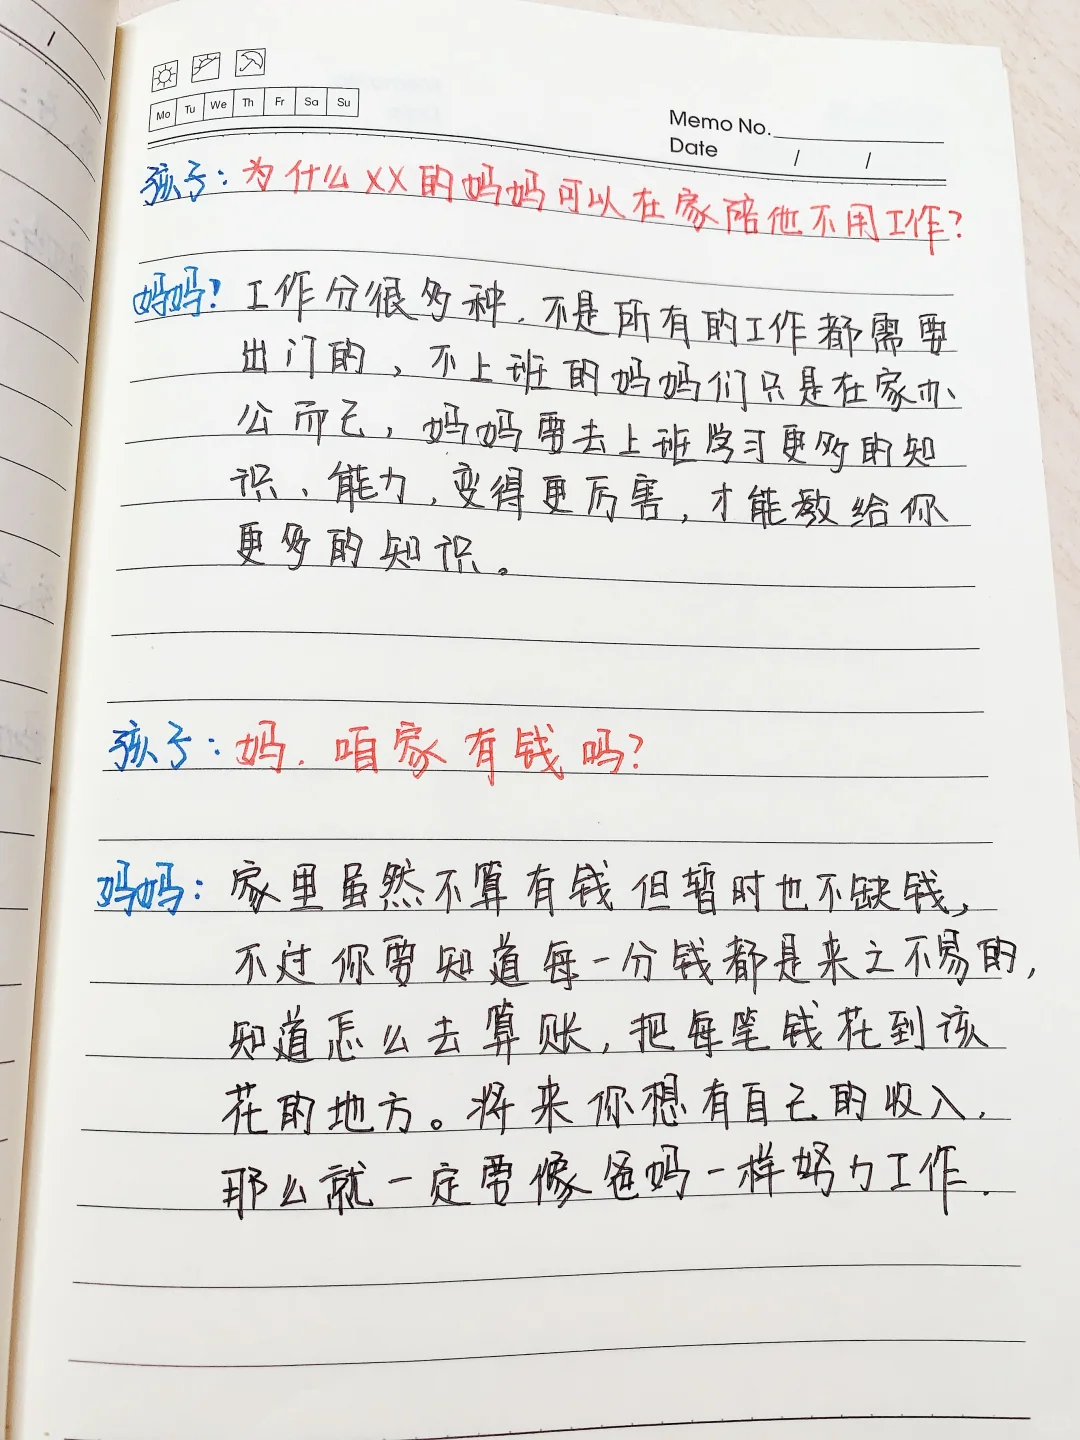 Mo Tu We Th Fr Sa Su
Memo No.
Date / /
孩子：为什么XX的妈妈可以在家陪他不用工作？
妈妈：工作分很多种，不是所有的工作都需要
出门的，不上班的妈妈们只是在家办
公而已，妈妈要去上班学习更多的知
识、能力，变得更厉害，才能教给你
更多的知识。
孩子：妈，咱家有钱吗？
妈妈：家里虽然不算有钱但暂时也不缺钱，
不过你要知道每一分钱都是来之不易的，
知道怎么去算账，把每笔钱花到该
花的地方。将来你想有自己的收入，
那么就一定要像爸妈一样努力工作.